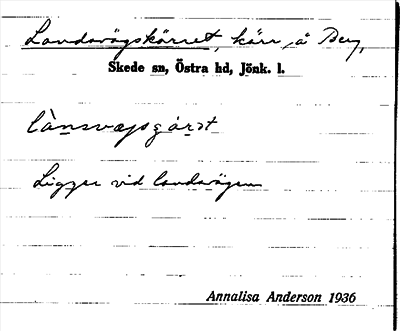 Landsvägskärret, kärr, å Berg,
Skede sn, Östra hd, Jönk. l.
Ligger vid landsvägen
Annalisa Anderson 1936